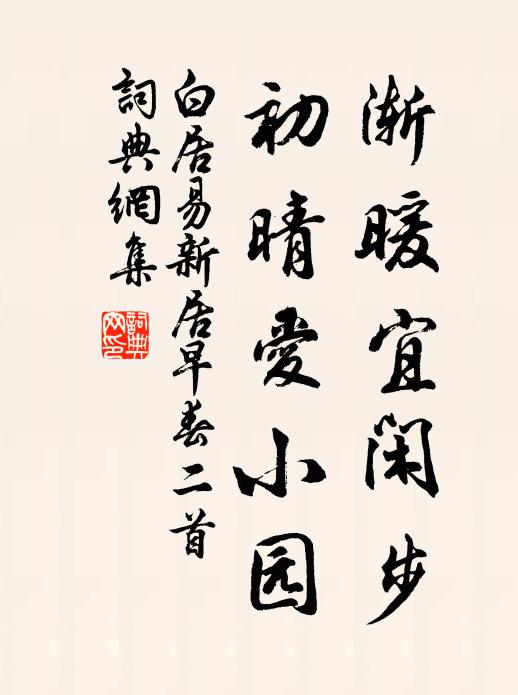 渐暖宜閑步
初晴愛小园
白居易新居早春二首
詞典網集
詞典網印